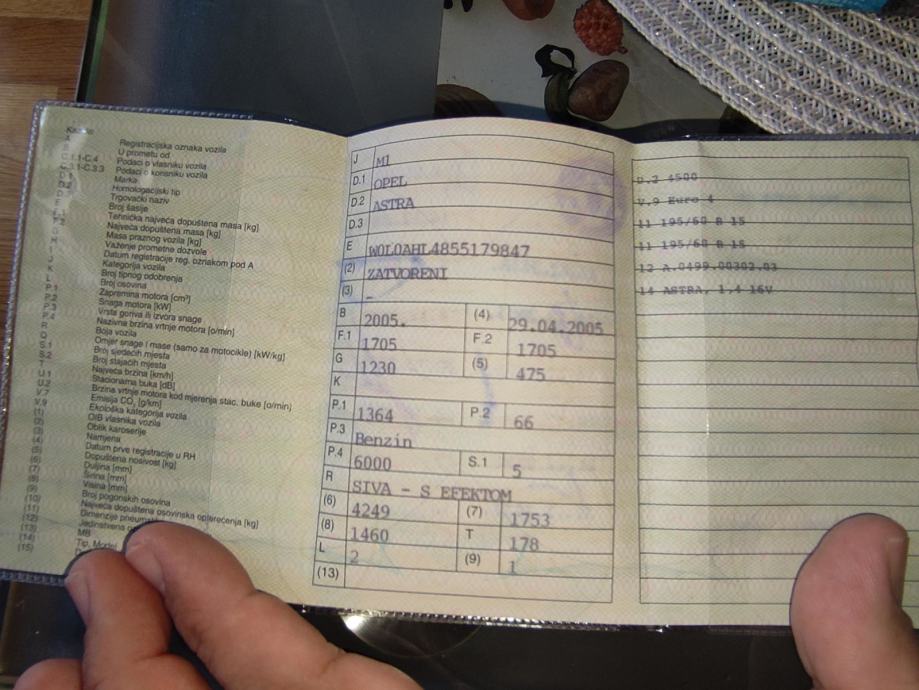 Registracijska oznaka vozila
U prometu od
C.1.1-C.4 Podaci o vlasniku vozila
C.3.1-C.3.3 Podaci o korisniku vozila
Marka
Homologacijski tip
Trgovački naziv
Broj šasije
Tehnička najveća dopuštena masa [kg]
Najveća dopuštena masa [kg]
Masa praznog vozila [kg]
Važenje prometne dozvole
Datum registracije reg. oznakom pod A
J Kategorija vozila
K Broj tipnog odobrenja
L Broj osovina
P.1 Zapremina motora [cm³]
P.2 Snaga motora [kW]
P.3 Vrsta goriva ili izvora snage
P.4 Nazivna brzina vrtnje motora [o/min]
R Boja vozila
Q Omjer snage i mase (samo za motocikle) [kW/kg]
S.1 Broj sjedaćih mjesta
S.2 Broj stajaćih mjesta
T Najveća brzina [km/h]
U.1 Stacionarna buka [dB]
U.2 Brzina vrtnje motora kod mjerenja stac. buke [o/min]
V.7 Emisija CO₂ [g/km]
V.9 Ekološka kategorija vozila
(1) OIB vlasnika vozila
(2) Oblik karoserije
(3) Namjena
(4) Datum prve registracije u RH
(5) Dopuštena nosivost [kg]
(6) Duljina [mm]
(7) Širina [mm]
(8) Visina [mm]
(9) Broj pogonskih osovina
(10) Najveća dopuštena osovinska opterećenja [kg]
(11) Dimenzije
(12) Jedinstvena
(13) MB
(14) Tip, Model
(15)
J M1
D.1 OPEL
D.2 ASTRA
D.3
E W0L0AHL4855179847
(2) ZATVORENI
(3) -
B 2005. (4) 29.04.2005
F.1 1705 F.2 1705
G 1230 (5) 475
K
P.1 1364 P.2 66
P.3 Benzin
P.4 6000 S.1 5
R SIVA - S EFEKTOM
(6) 4249 (7) 1753
(8) 1460 T 178
L 2 (9) 1
(13)
D.2 4500
V.9 Euro 4
11 195/60 R 15
11 195/60 R 15
12 A.0499.00302.03
14 ASTRA, 1,4 16V